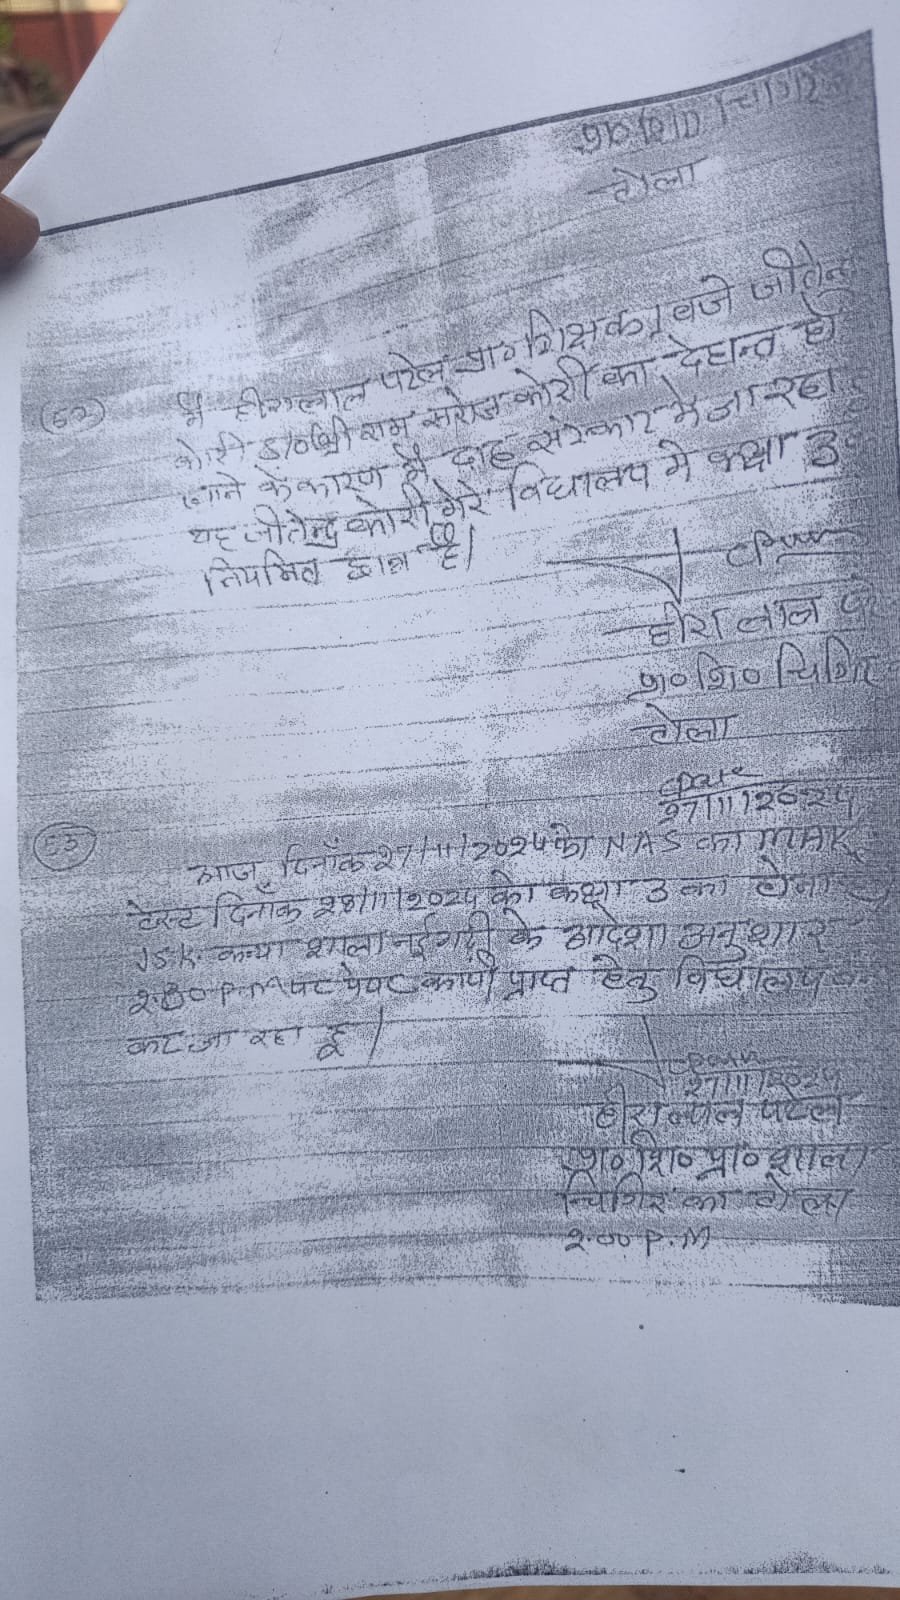 प्र० शि० चिगिर
टोला
(52) मै हीरालाल पटेल प्रा० शिक्षक 1 वजे जीतेन्द्र
कोरी S/० श्री राम सरोज कोरी का देहान्त हो
जाने के कारण मै दाह संस्कार मे जा रहा
यह जीतेन्द्र कोरी मेरे विधालय मे कक्षा 3
नियमित छात्र है।
हीरा लाल
प्र० शि० चिगिर
टोला
27/11/2024
(53) आज दिनाँक 27/11/2024 को NAS का
टेस्ट दिनाँक 28/11/2024 को कक्षा 3 का होना
J.S.K. कन्या शाला नईगढ़ी के आदेशा अनुशार
2:30 P.M पर पेपर कापी प्राप्त हेतु विधालय
कर जा रहा हूँ।
27/11/2024
हीरालाल पटेल
प्र० शि० प्रा० शाला
चिगिर का टोला
2:00 P.M